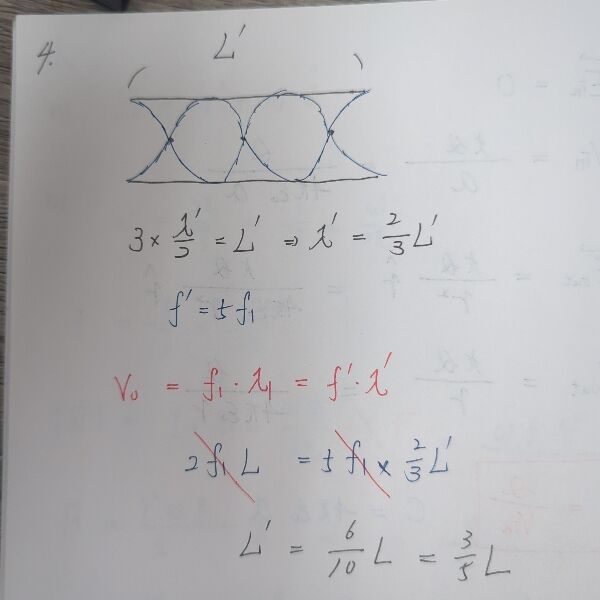 4.
L'
3 × λ'/2 = L' ⇒ λ' = 2/3 L'
f' = 5 f₁
V₀ = f₁ · λ₁ = f' · λ'
2 f₁ L = 5 f₁ × 2/3 L'
L' = 6/10 L = 3/5 L